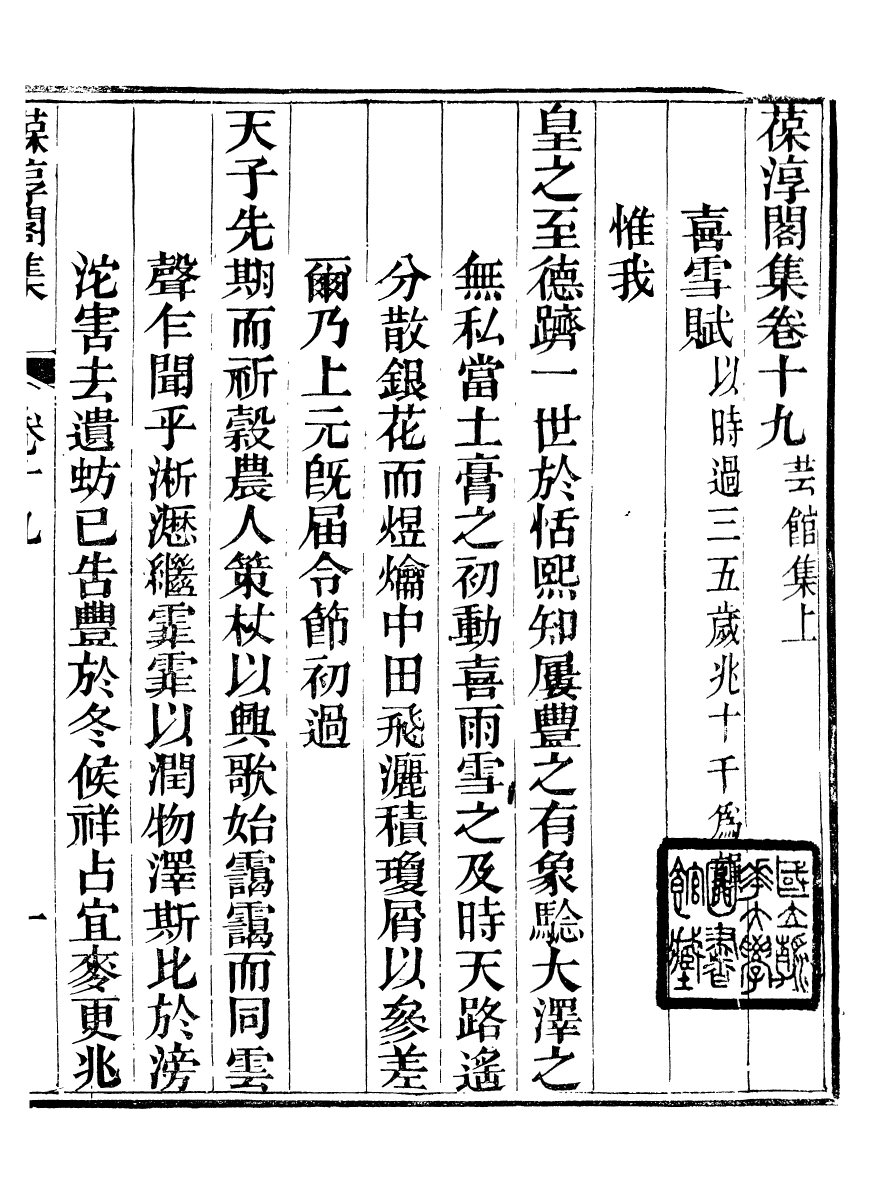 葆淳閣集卷十九 芸館集上
喜雪賦 以時過三五歲兆十千爲
惟我
皇之至德躋一世於恬熙知屢豐之有象騐大澤之
無私當土膏之初動喜雨雪之及時天路遙
分散銀花而煜爚中田飛灑積瓊屑以參差
爾乃上元旣届令節初過
天子先期而祈穀農人策杖以興歌始靄靄而同雲
聲乍聞乎淅瀝繼霏霏以潤物澤斯比於滂
沱害去遺蝗已告豐於冬候祥占宜麥更兆
葆淳閣集 卷十九 一
國立
大學
圖書
館藏